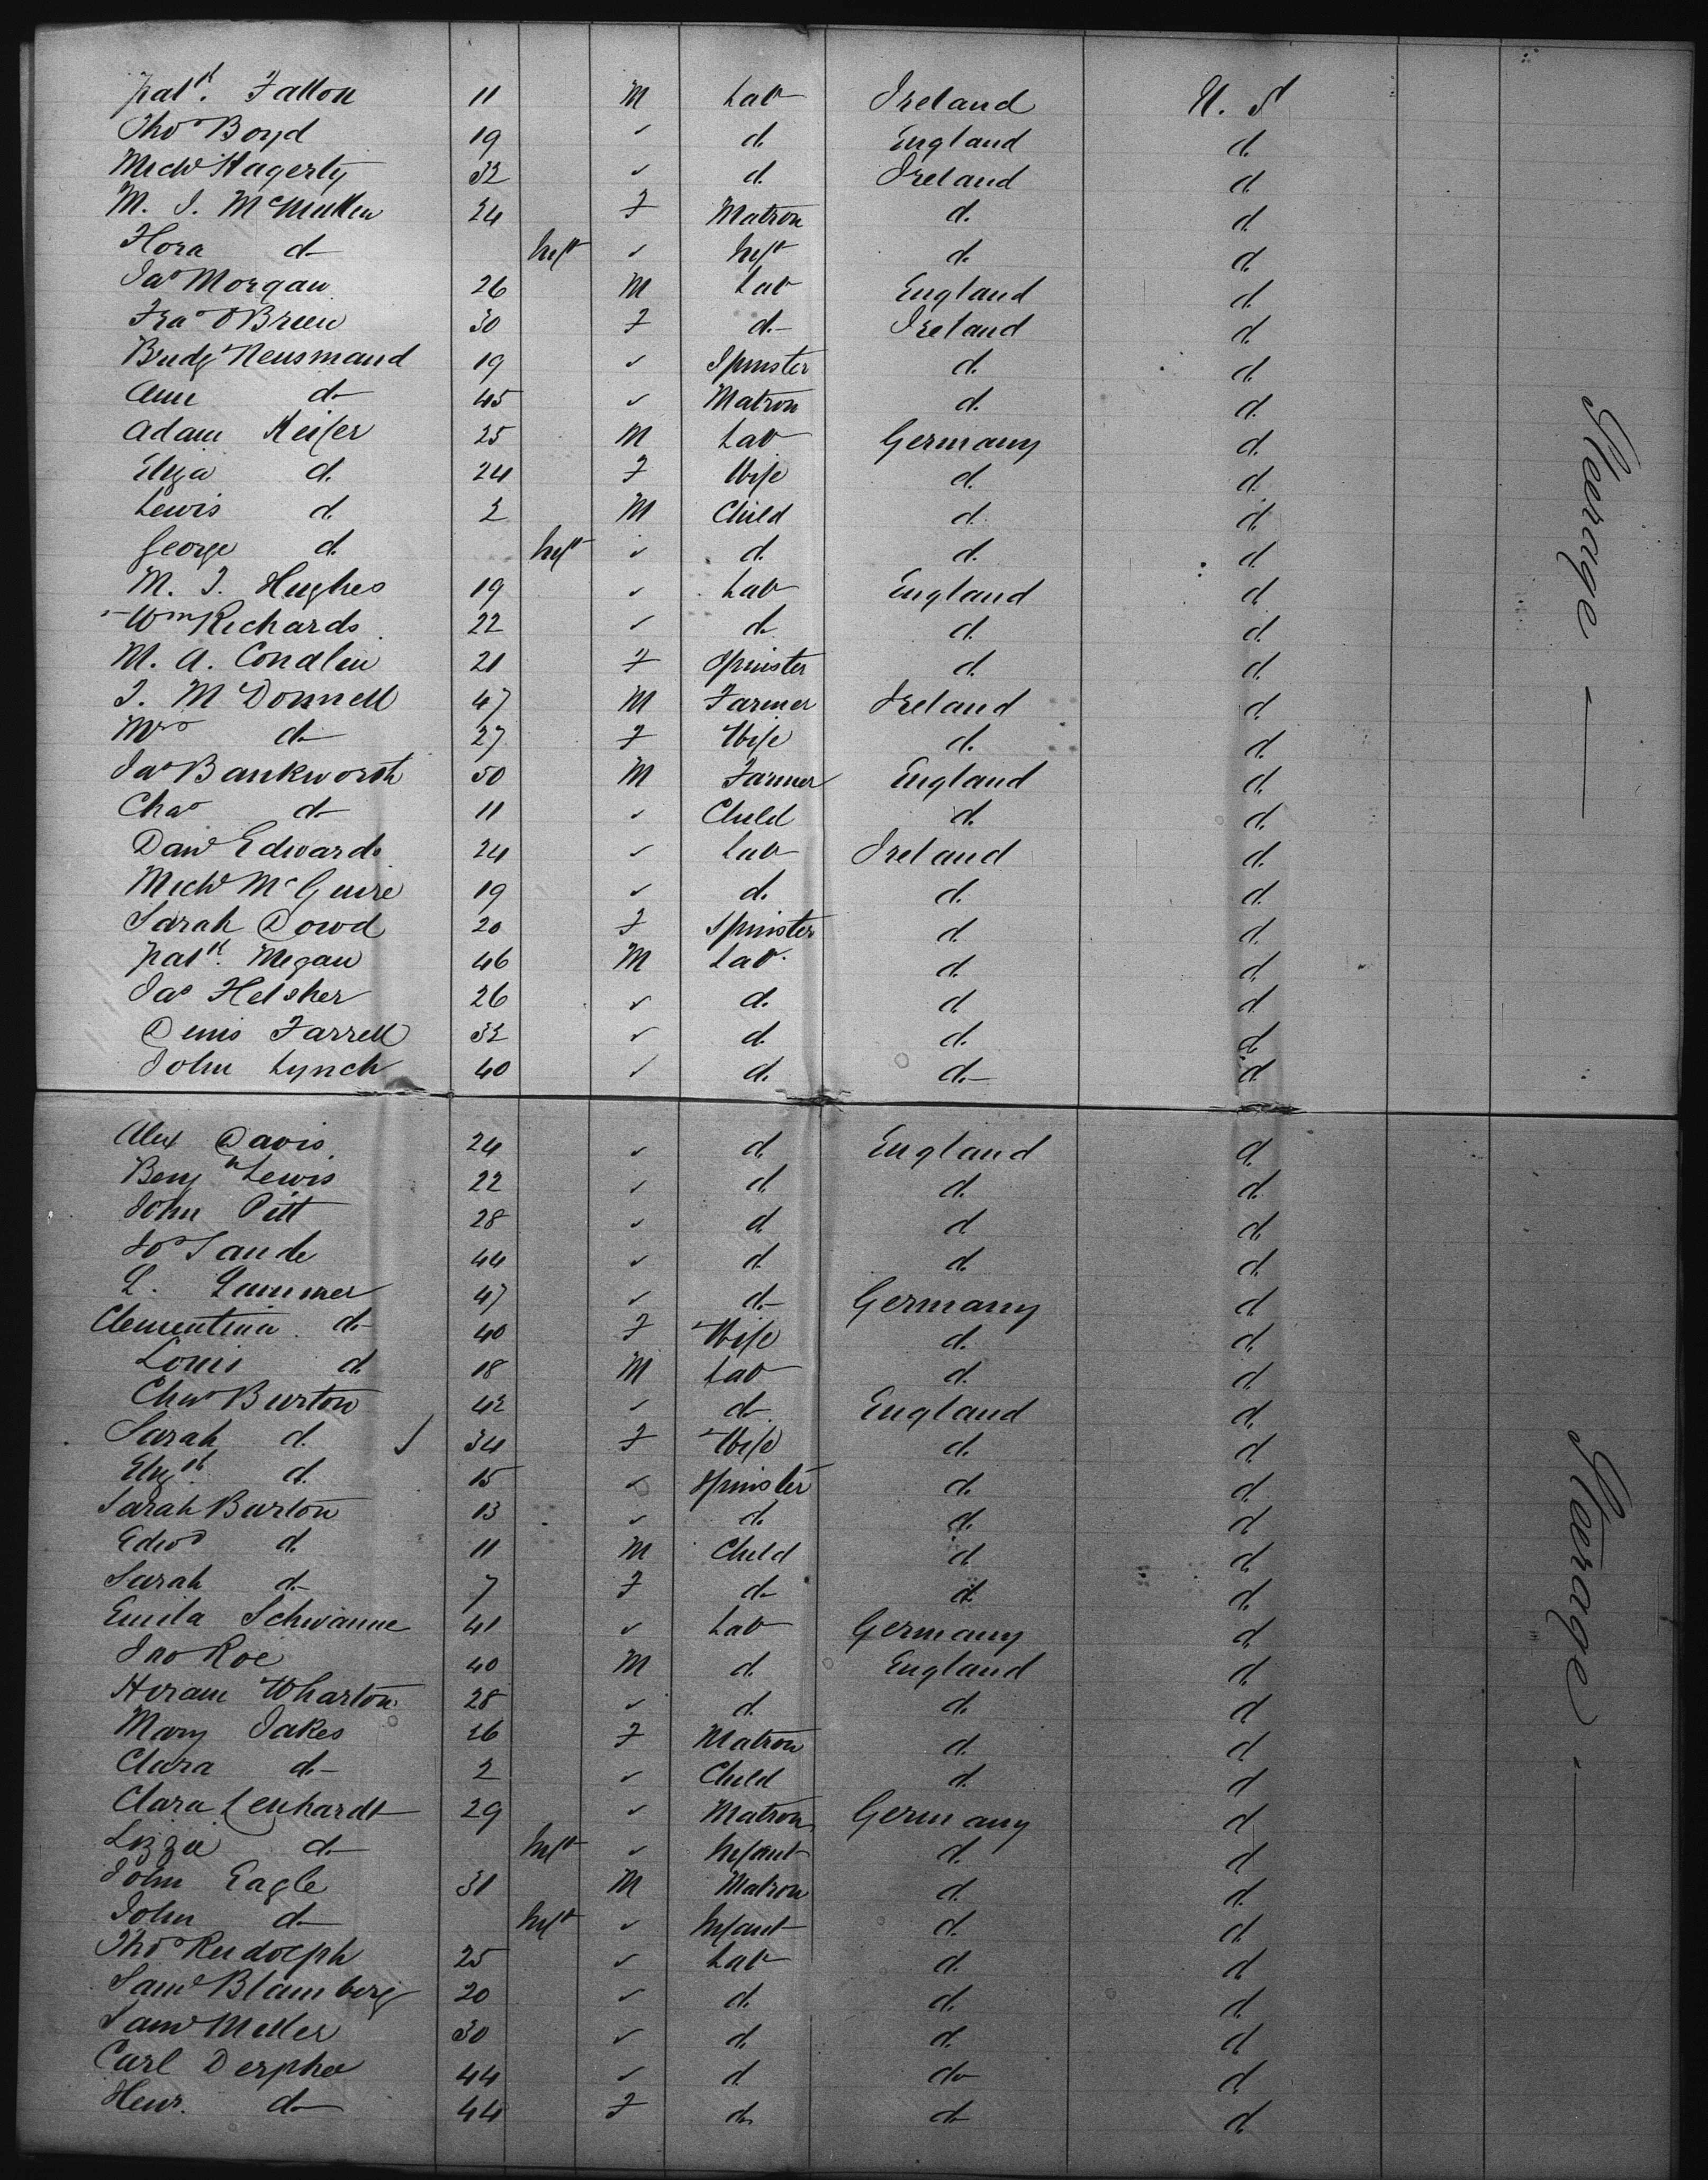 Patk. Fallon 11 M Lab Ireland U. S
Thos Boyd 19 " d. England d.
Michl Hagerty 32 " d. Ireland d.
M. J. McMullen 24 F Matron d. d.
Flora d- Inft " Inft d. d.
Jas Morgan 26 M Lab England d.
Fras OBrien 30 F d.- Ireland d.
Bridgt 19 " Spinster d. d.
Ann d- 45 " Matron d. d.
Adam Keifer 25 M Lab Germany d.
Eliza d. 24 F Wife d. d.
Lewis d. 2 M Child d. d.
George d. Inft " d. d. d.
M. J. Hughes 19 " Lab England d.
Wm Richards 22 " d- d. d.
M. A. Condlin 21 F Spinster d. d.
J. McDonnell 47 M Farmer Ireland d.
Mrs d- 27 F Wife d. d.
Jas Bankworth 50 M Farmer England d.
Chas d- 11 " Child d. d.
Davd Edwards 24 " Lab Ireland d.
Michl McGuire 19 " d. d. d.
Sarah Dowd 20 F Spinster d. d.
Patk. Megan 46 M Lab. d. d.
Jas Helsher 26 " d. d d
Denis Farrell 32 " d. d. d.
John Lynch 40 " d. d.- d
Alex Davis 24 " d. England d.
Benjn Lewis 22 " d. d. d.
John Pitt 28 " d. d d.
44 " d. d. d.
L. Lammer 47 " d.- Germany d.
Clementina d.- 40 F Wife d. d.
Louis d. 18 M Lab d. d.
Chas Burton 42 " d- England d.
Sarah d. 34 F Wife d. d.
Elizth. d. 15 " Spinster d. d.
Sarah Burton 13 " d. d. d
Edwd d. 11 M Child d d.
Sarah d.- 7 F d- d. d.
Emila Schwanne 41 " Lab Germany d
Jno Roe 40 M d. England d.
Hiram Wharton 28 " d. d. d
Mary Jakes 26 F Matron d. d
Clara d- 2 " Child d. d
Clara Lenhardt 29 " Matron Germany d
Lizzie d.- Inft " Infant d. d
John Eagle 31 M Matron d. d.
John d- Inft " Infant d. d
Thos Rudolph 25 " Lab d. d
Saml Blamberg 20 " d. d. d.
Saml Miller 30 " d. d. d
Carl Derpha 44 " d do d.
Henr. d- 44 F d. d- d.
Steerage
Steerage